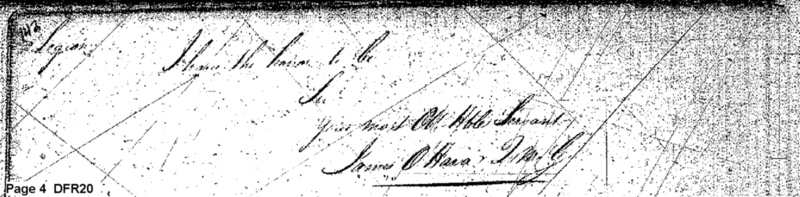 Legion
I have the honor to be
Sir
Your most Ob Hble Servant
James O Hara Q M G
Page 4 DFR20